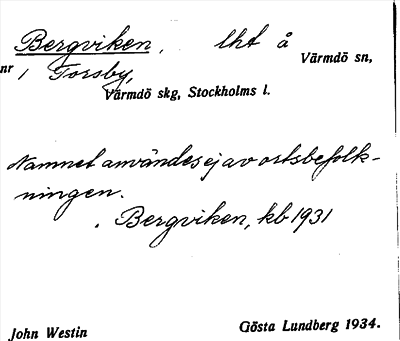 Bergviken, lht å
Värmdö sn,
nr 1 Torsby,
Värmdö skg, Stockholms l.
Namnet användes ej av ortsbefolk-
ningen.
. Bergviken, kb 1931
John Westin
Gösta Lundberg 1934.